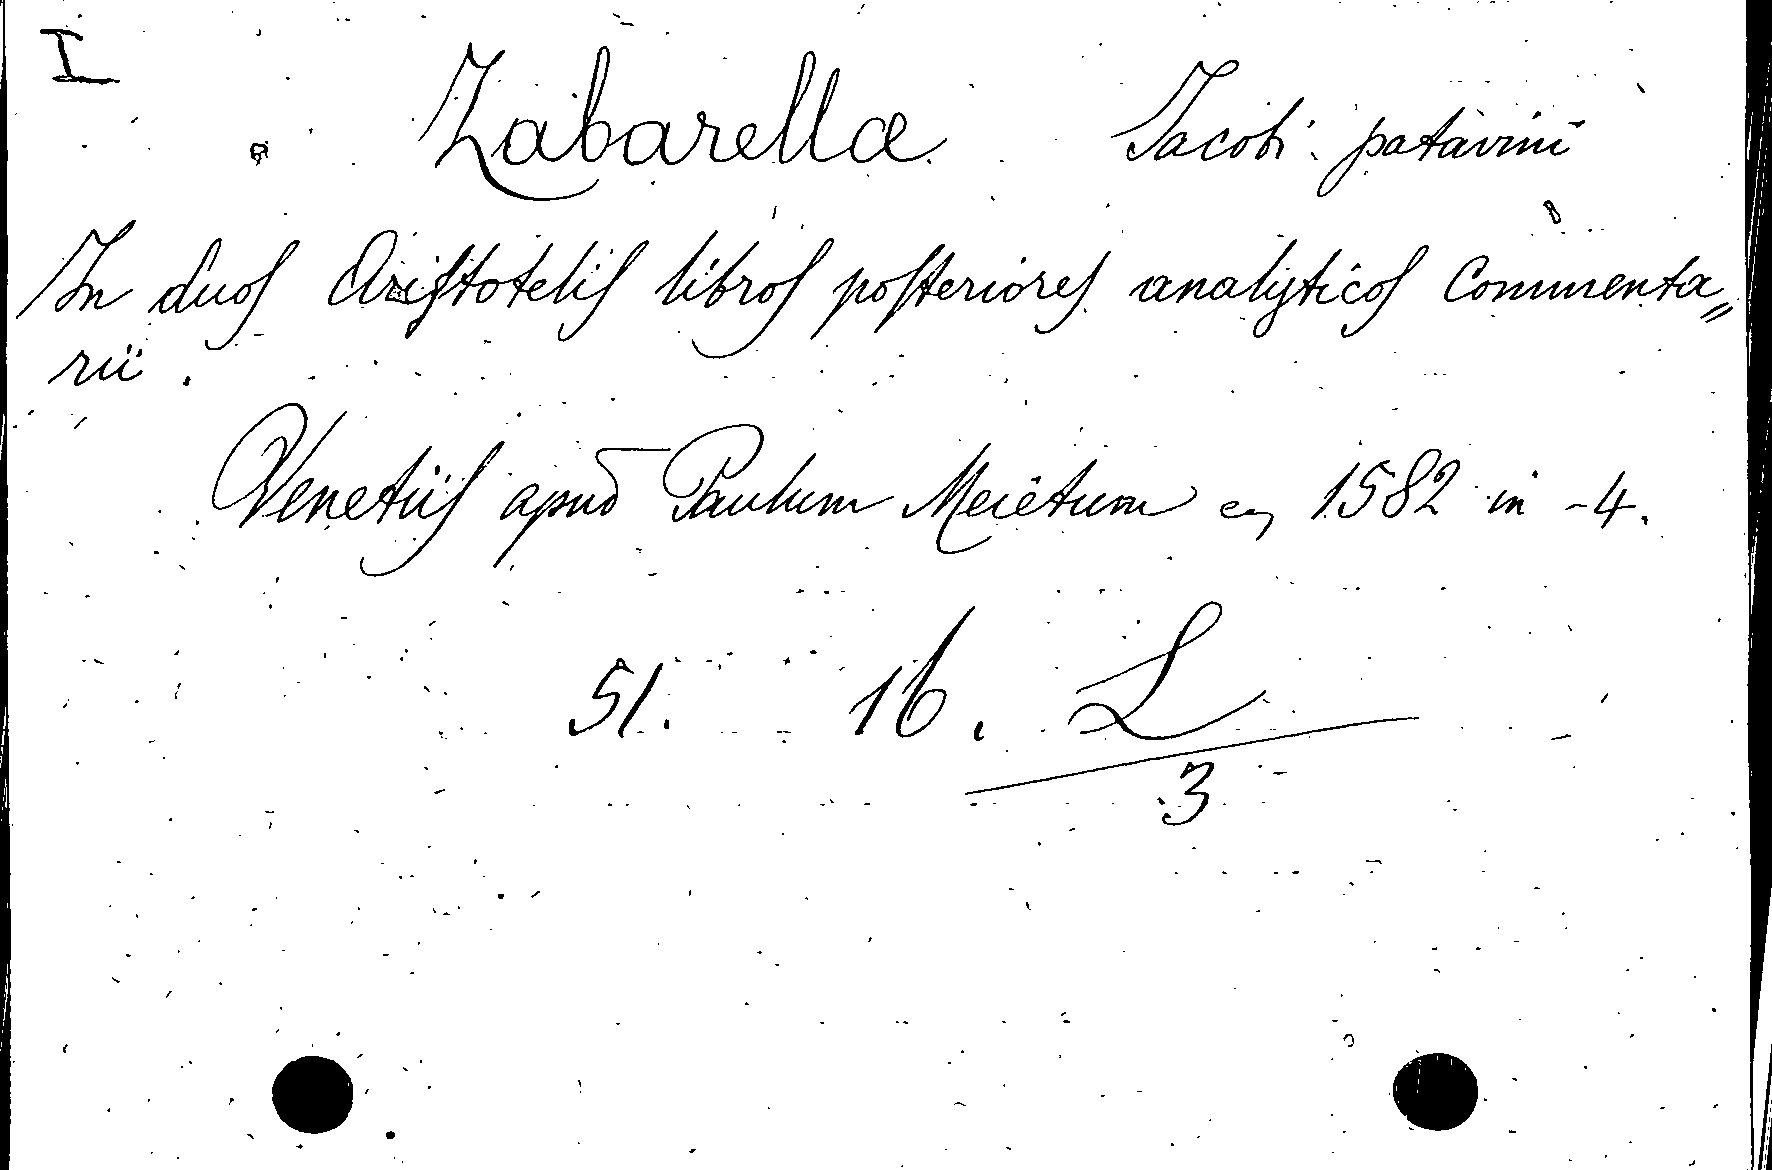 I
Zabarellæ Jacobi patavini
In duos Aristotelis libros posteriores analyticos Commenta„
rii.
Venetiis apud Paulum Meietum 1582 in -4.
51. 16. L
3